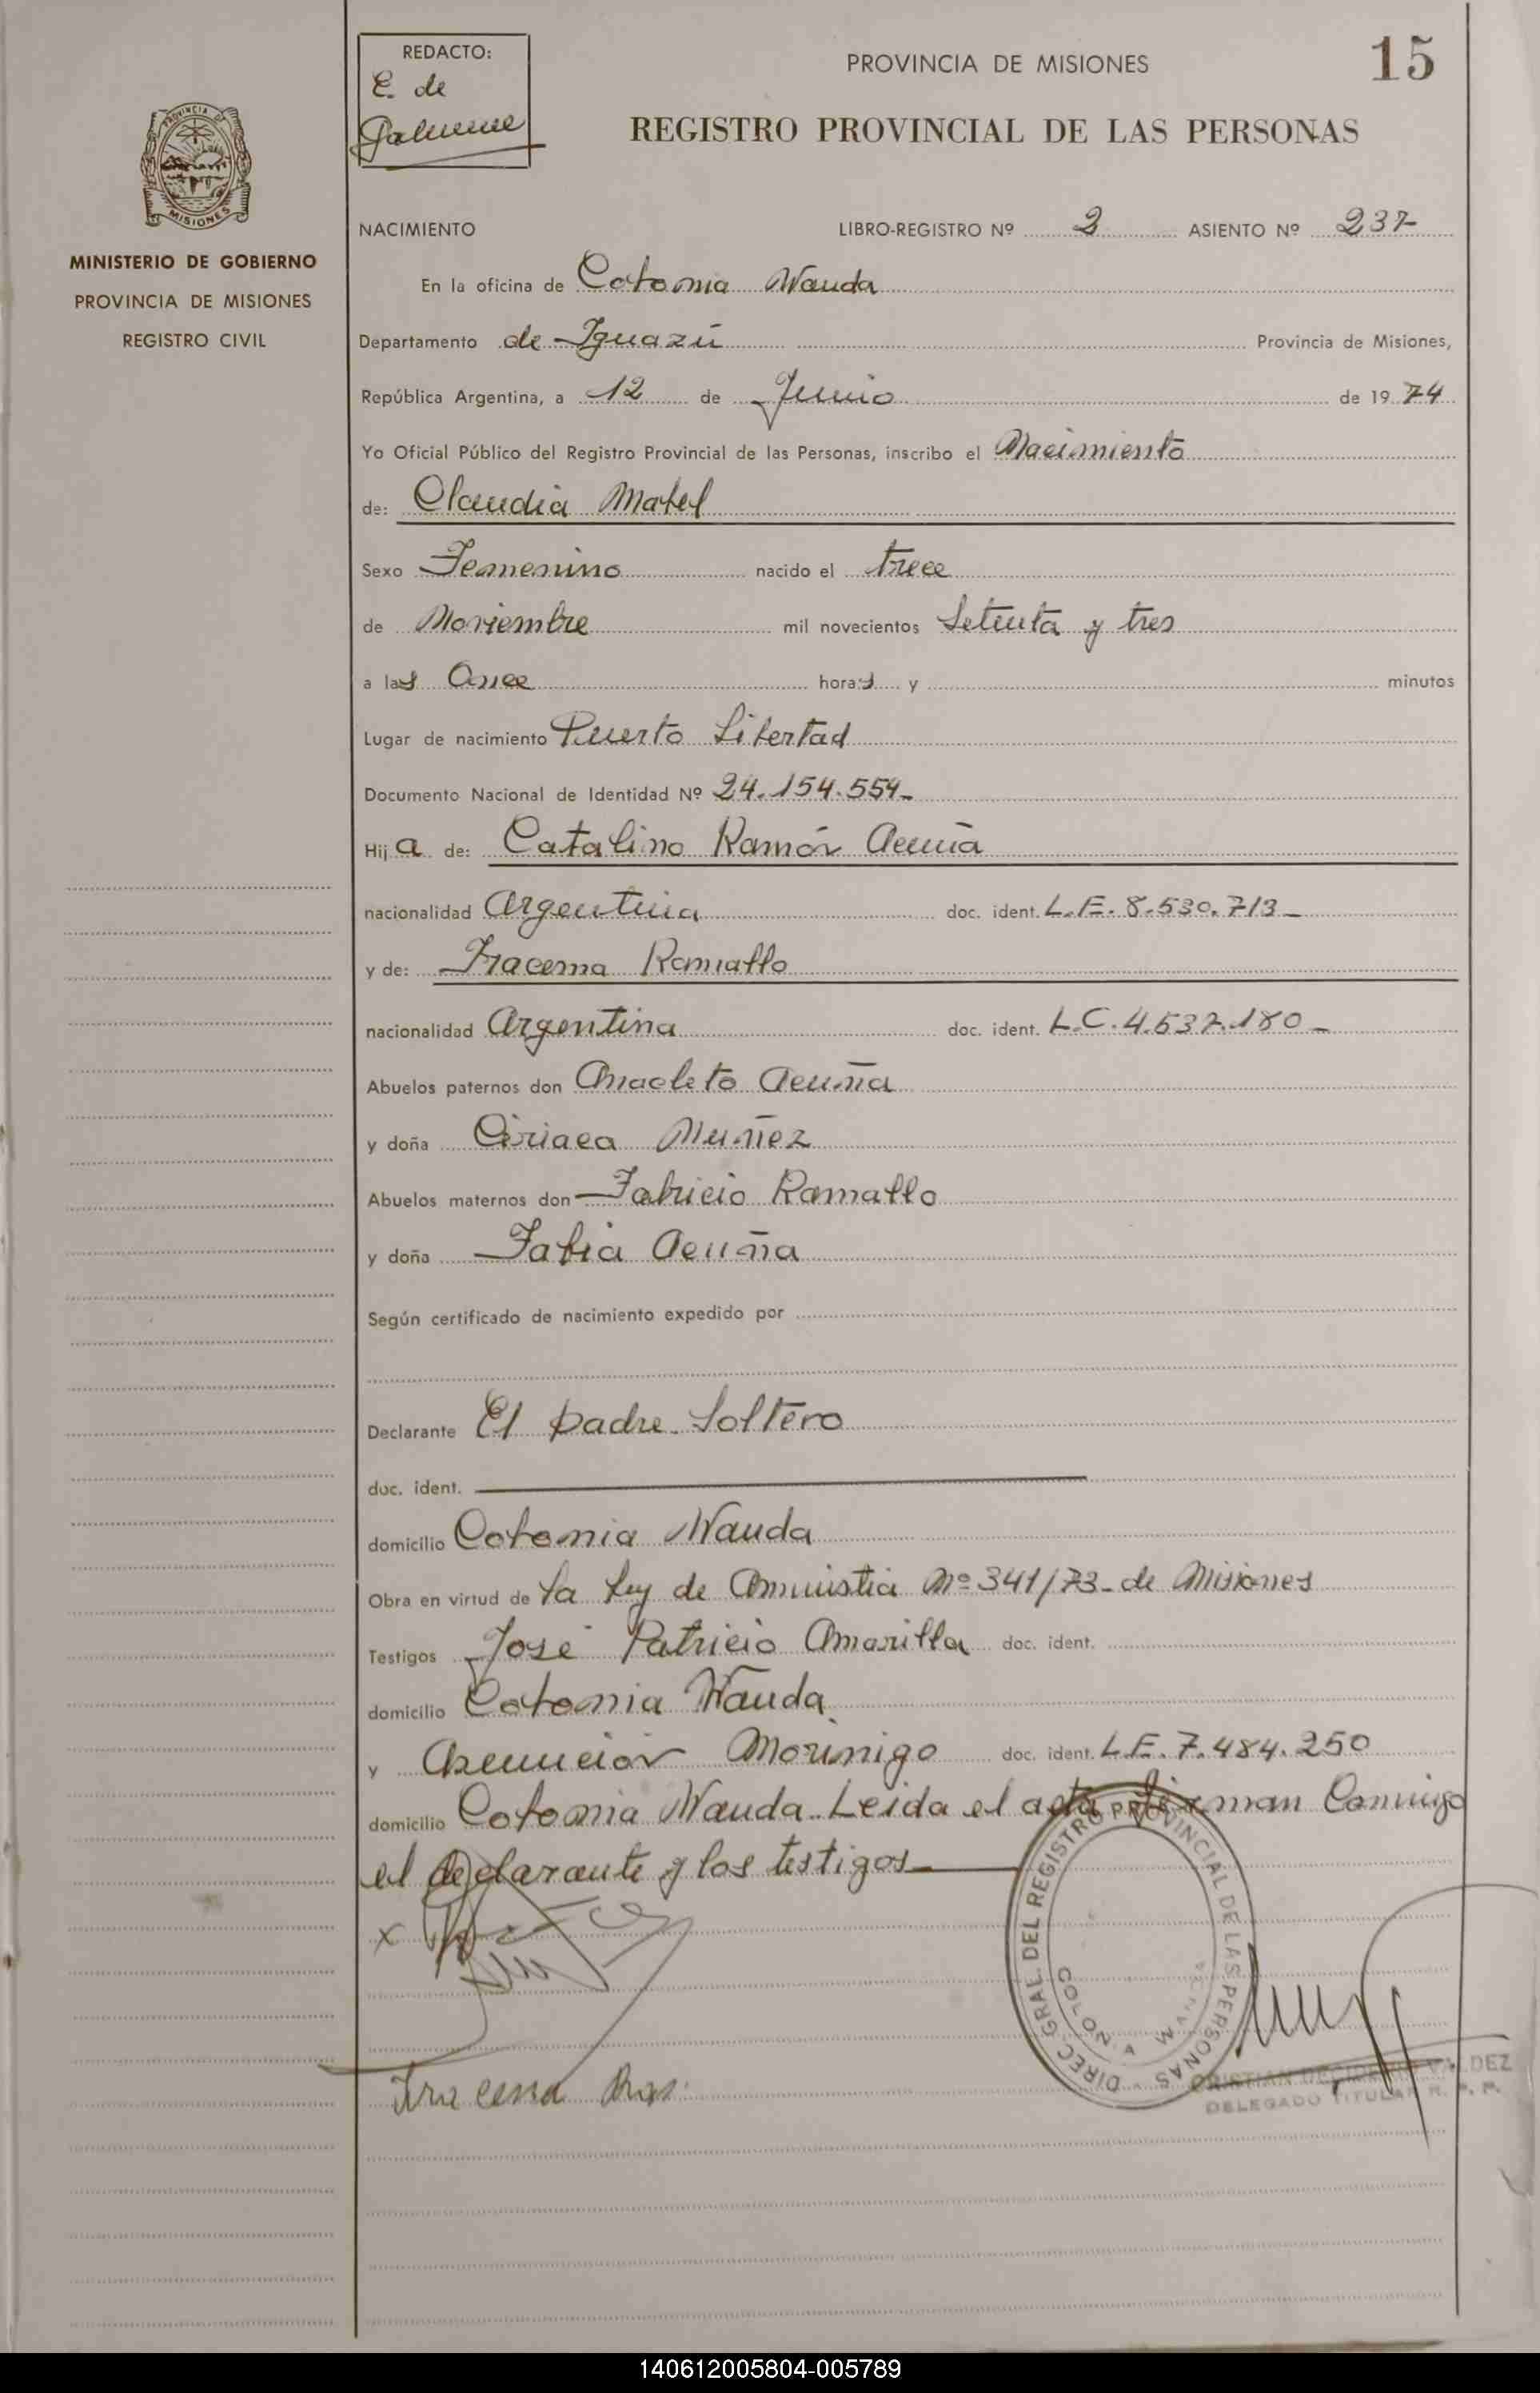 15
REDACTO:
E. de
PROVINCIA DE MISIONES
REGISTRO PROVINCIAL DE LAS PERSONAS
PROVINCIA DE
MISIONES
MINISTERIO DE GOBIERNO
PROVINCIA DE MISIONES
REGISTRO CIVIL
NACIMIENTO LIBRO-REGISTRO Nº 2 ASIENTO Nº 237
En la oficina de Colonia Wanda
Departamento de Iguazú Provincia de Misiones,
República Argentina, a 12 de Junio de 1974
Yo Oficial Público del Registro Provincial de las Personas, inscribo el Nacimiento
de: Claudia Mabel
Sexo Femenino nacido el trece
de Noviembre mil novecientos Setenta y tres
a las Once horas y minutos
Lugar de nacimiento Puerto Libertad
Documento Nacional de Identidad Nº 24.154.554-
Hija de: Catalino Ramón Acuña
nacionalidad Argentina doc. ident. L.E. 8.530.713-
y de: Iracema Ramallo
nacionalidad Argentina doc. ident. L.C. 4.537.180-
Abuelos paternos don Anacleto Acuña
y doña Ciriaca Nuñez
Abuelos maternos don Fabricio Ramallo
y doña Fabia Acuña
Según certificado de nacimiento expedido por
Declarante El padre Soltero
doc. ident.
domicilio Colonia Wanda
Obra en virtud de la Ley de Amnistia Nº 341/73- de Misiones
Testigos José Patricio Amarilla doc. ident.
domicilio Colonia Wanda
y Asunción Morinigo doc. ident. L.E. 7.484.250
domicilio Colonia Wanda. Leida el acta firman Conmigo
el declarante y los testigos
DIREC. GRAL. DEL REGISTRO PROVINCIAL DE LAS PERSONAS
COLONIA WANDA
x
Iracema
CRISTIAN VALDEZ
DELEGADO TITULAR R. P. P.
140612005804-005789